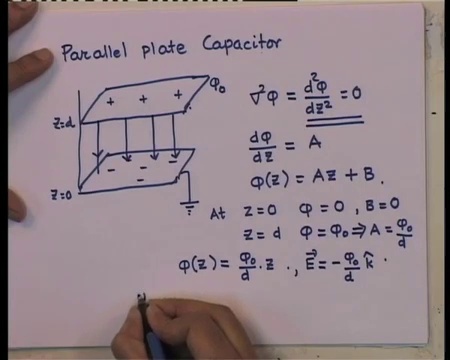 Parallel plate Capacitor
φ₀
+ + +
z=d
- - - -
- -
z=0
∇²φ = d²φ/dz² = 0
dφ/dz = A
φ(z) = Az + B.
At z=0 φ=0, B=0
z=d φ=φ₀ ⇒ A = φ₀/d
φ(z) = φ₀/d . z ., E⃗ = - φ₀/d k̂ .